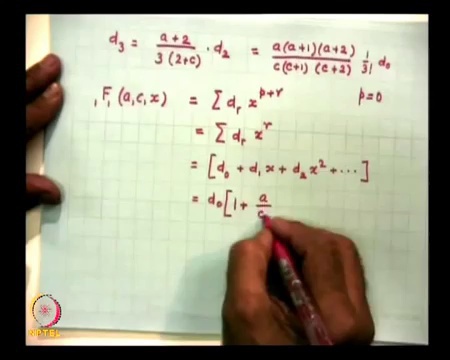 d₃ = (a+2)/(3(2+c)) · d₂ = (a(a+1)(a+2))/(c(c+1)(c+2)) 1/3! d₀
₁F₁(a,c,x) = Σ dᵣ x^(p+r) p=0
= Σ dᵣ x^r
= [d₀ + d₁x + d₂x² + ···]
= d₀ [1 + a/c
NPTEL